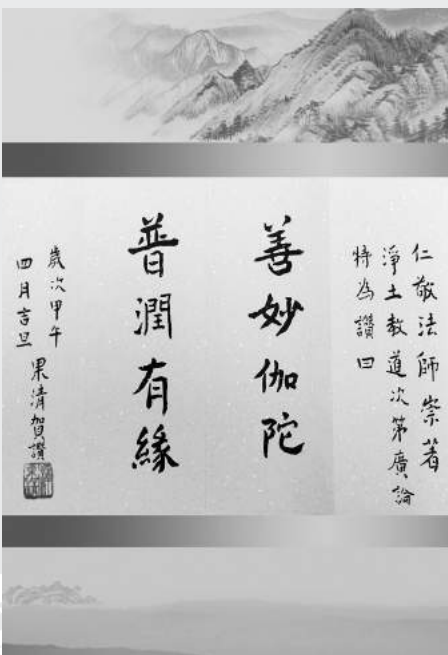 仁敬法師崇著
淨土教道次第廣論
特為讚曰
善妙伽陀
普潤有緣
歲次甲午
四月吉旦
果清賀讚